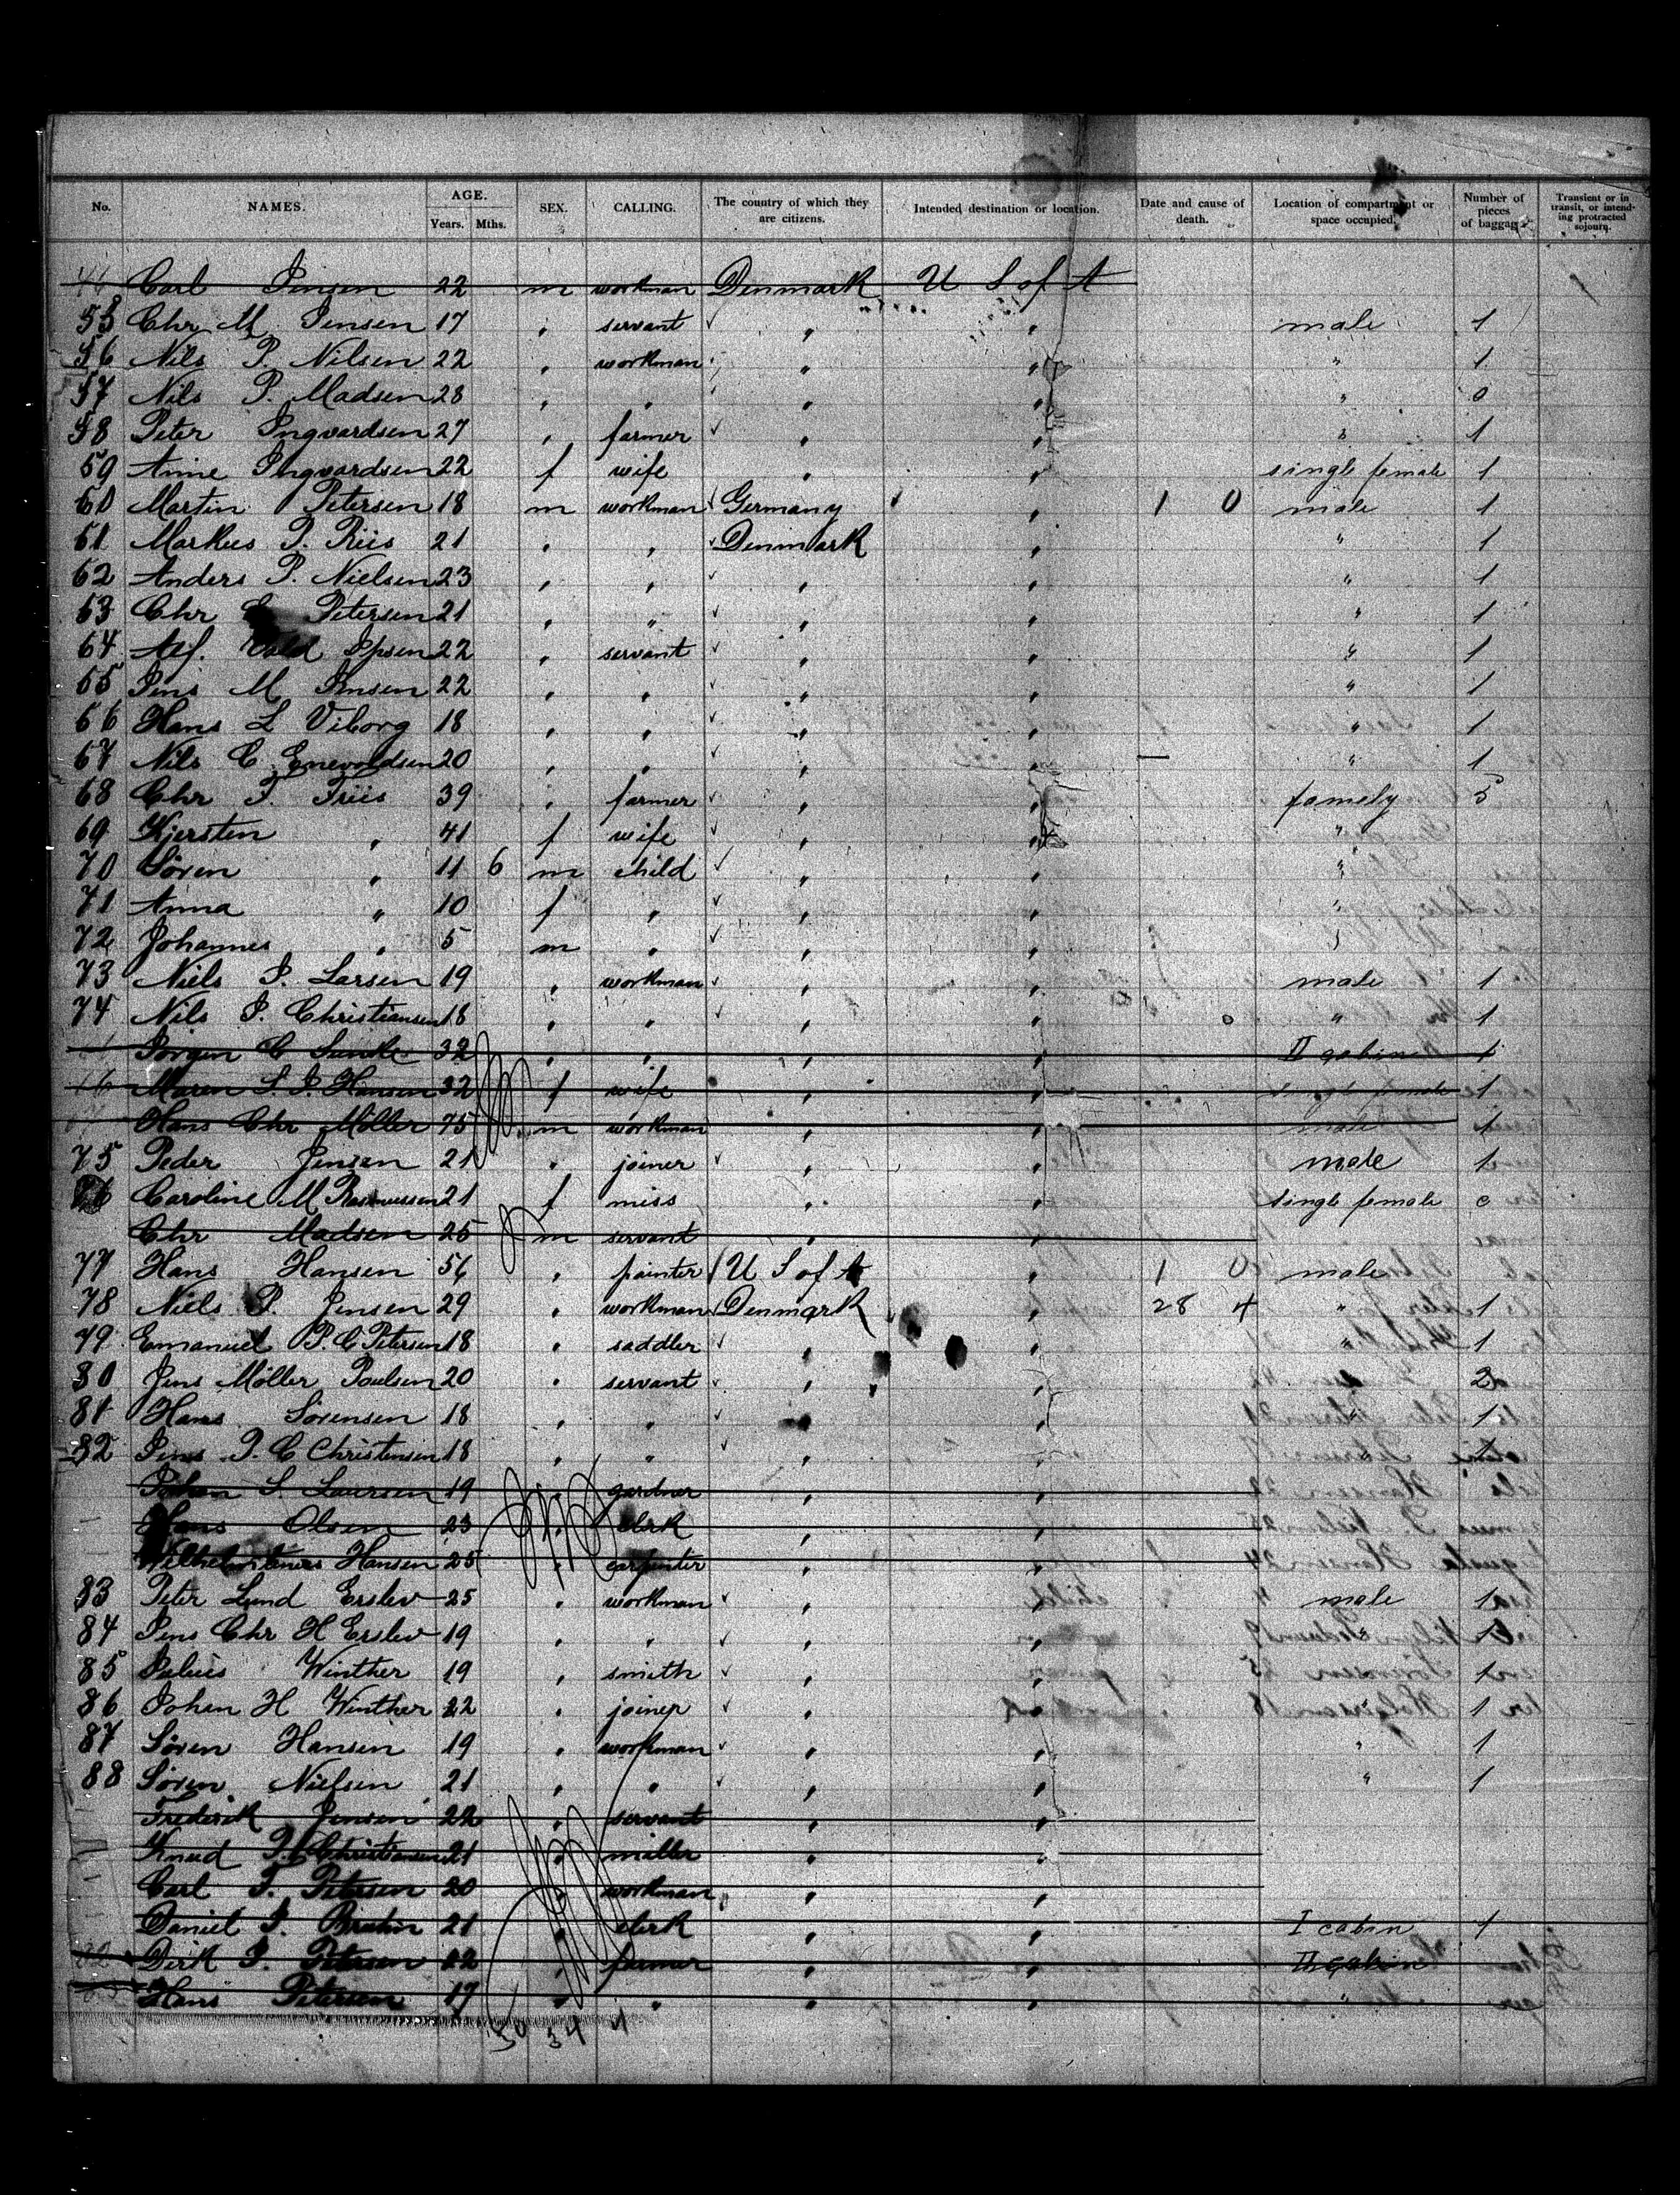 No. NAMES. AGE. Years. Mths. SEX. CALLING. The country of which they are citizens. Intended destination or location. Date and cause of death. Location of compartment or space occupied. Number of pieces of baggage Transient or in transit, or intending protracted sojourn.
Carl Jensen 22 m workman Denmark U S of A
55 Chr M. Jensen 17 " servant " " male 1
56 Nils P. Nilsen 22 " workman " " " 1
57 Nils P. Madsen 28 " " " " " 0
58 Peter Ingvardsen 27 " farmer " " " 1
59 Anne Ingvardsen 22 f wife " " single female 1
60 Martin Petersen 18 m workman Germany " 1 0 male 1
61 Markus P. Riis 21 " " Denmark " " 1
62 Anders P. Nielsen 23 " " " " " 1
63 Chr Petersen 21 " " " " " 1
64 Alf. Ipsen 22 " servant " " " 1
65 Jens M Jensen 22 " " " " " 1
66 Hans L Viborg 18 " " " " " 1
67 Nils C. Enevoldsen 20 " " " " — " 1
68 Chr T. Friis 39 " farmer " " famely 5
69 Kjersten " 41 f wife " " "
70 Sören " 11 6 m child " " "
71 Anna " 10 f " " " "
72 Johannes " 5 m " " " "
73 Niels J. Larsen 19 " workman " " male 1
74 Nils P. Christiansen 18 " " " " " 1
Jörgen C 32 " " " " II cabin 1
Maren S. J. Hansen 32 f wife " " single female 1
Hans Chr Möller 75 m workman " " male 1
75 Peder Jensen 21 " joiner " " male 1
76 Caroline M Rasmussen 21 f miss " " single female 0
Chr Madsen 25 m servant " "
77 Hans Hansen 56 " painter U S of A " 1 0 male
78 Niels P. Jensen 29 " workman Denmark " 28 4 " 1
79 Emanuel P. C Petersen 18 " saddler " " " 1
80 Jens Möller Poulsen 20 " servant " " " 2
81 Hans Sörensen 18 " " " " " 1
82 Jens P. C Christensen 18 " " " " " 1
Johan S. Laursen 19 " gardner " "
Hans Olsen 23 " clerk " "
Wilhelm Hansen 25 " carpinter " "
83 Peter Lund Erslev 25 " workman " " male 1
84 Jens Chr H Erslev 19 " " " " " 1
85 Julius Winther 19 " smith " " " 1
86 Johan H Winther 22 " joiner " " " 1
87 Sören Hansen 19 " workman " " " 1
88 Sören Nielsen 21 " " " " " 1
Frederik Jensen 22 " servant " "
Knud P. Christiansen 21 " miller " "
Carl T. Petersen 20 " workman " "
Daniel J. 21 " clerk " " I cabin 1
Dirk J. Petersen 22 " farmer " " II cabin
Hans Petersen 17 " " " " "
34